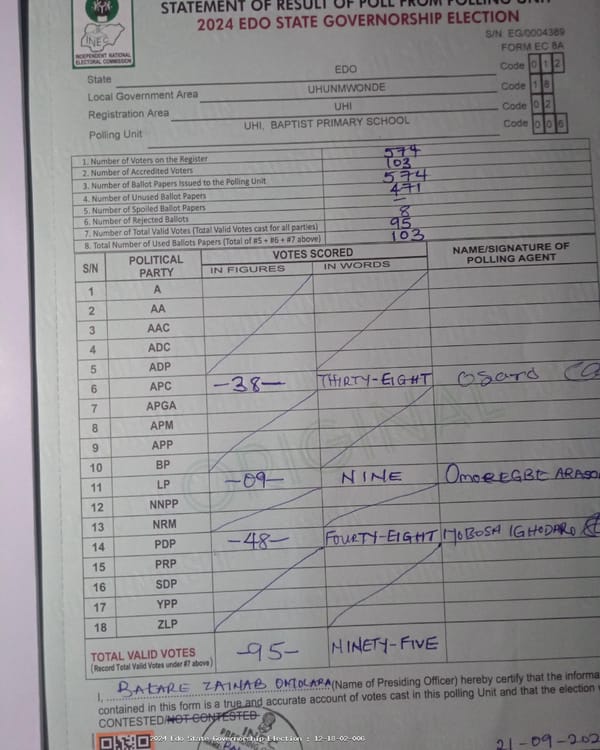 STATEMENT OF RESULT OF POLL FROM POLLING UNIT
2024 EDO STATE GOVERNORSHIP ELECTION
INEC
INDEPENDENT NATIONAL
ELECTORAL COMMISSION
S/N EG/0004389
FORM EC 8A
State EDO Code 012
Local Government Area UHUNMWONDE Code 18
Registration Area UHI Code 02
Polling Unit UHI, BAPTIST PRIMARY SCHOOL Code 006
1. Number of Voters on the Register 574
2. Number of Accredited Voters 103
3. Number of Ballot Papers Issued to the Polling Unit 574
4. Number of Unused Ballot Papers 471
5. Number of Spoiled Ballot Papers –
6. Number of Rejected Ballots 8
7. Number of Total Valid Votes (Total Valid Votes cast for all parties) 95
8. Total Number of Used Ballots Papers (Total of #5 + #6 + #7 above) 103
S/N POLITICAL PARTY VOTES SCORED NAME/SIGNATURE OF POLLING AGENT
IN FIGURES IN WORDS
1 A
2 AA
3 AAC
4 ADC
5 ADP
6 APC -38- THIRTY-EIGHT Osaro
7 APGA
8 APM
9 APP
10 BP
11 LP -09- NINE
12 NNPP
13 NRM
14 PDP -48- FOURTY-EIGHT IGHODARO
15 PRP
16 SDP
17 YPP
18 ZLP
ORIGINAL
TOTAL VALID VOTES -95- NINETY-FIVE
(Record Total Valid Votes under #7 above)
I, BAKARE ZAINAB OMOLARA (Name of Presiding Officer) hereby certify that the informa
contained in this form is a true and accurate account of votes cast in this polling Unit and that the election
CONTESTED/NOT CONTESTED
2024 Edo State Governorship Election : 12-18-02-006
21-09-202